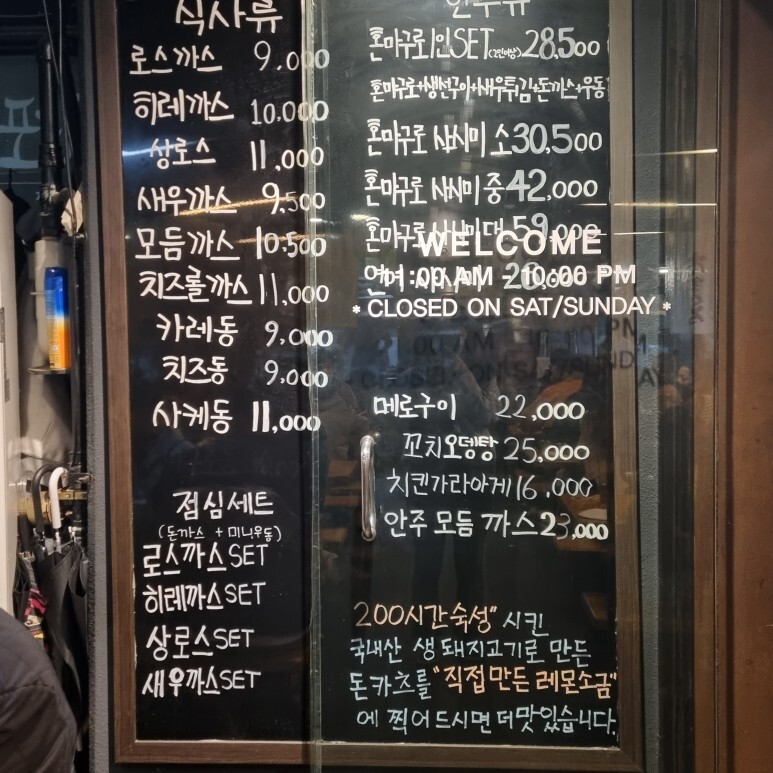 식사류
로스까스 9.000
히레까스 10.000
상로스 11,000
새우까스 9,500
모듬까스 10.500
치즈롤까스 11,000
카레동 9,000
치즈동 9,000
사케동 11,000
점심세트
(돈까스 + 미니우동)
로스까스 SET
히레까스 SET
상로스 SET
새우까스 SET
안주류
혼마구로 1인 SET 28,500
혼마구로+생선구이+새우튀김+돈까스+우동
혼마구로 사시미 소 30,500
혼마구로 사시미 중 42,000
혼마구로 사시미 대 59,000
WELCOME
연어
:00 AM 10:00 PM
* CLOSED ON SAT/SUNDAY *
메로구이 22,000
꼬치오뎅탕 25,000
치킨가라아게 16,000
안주 모듬 까스 23,000
200시간숙성" 시킨
국내산 생 돼지고기로 만든
돈카츠를 "직접 만든 레몬소금"
에 찍어 드시면 더 맛있습니다.